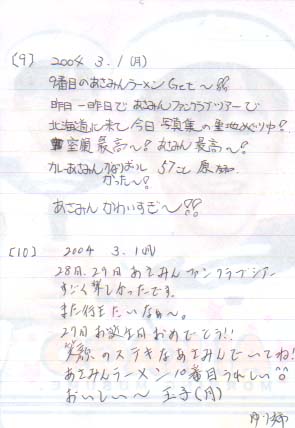 [9] 2004 3.1(月)
9番目のあさみんラーメンGet〜!!
昨日一昨日であさみんファンクラブツアーで
北海道に来て今日写真集の聖地めぐり中!
最高〜! あさみん最高〜!
カレーあさみん 57こ
かった〜!
あさみんかわいすぎ〜!!
[10] 2004 3.1(月)
28日、29日あさみんファンクラブツアー
すごく楽しかったです。
また行きたいなぁ〜。
27日お誕生日おめでとう!!
笑顔のステキなあさみんでいてね!
あさみんラーメン10番目うれしい^^
おいしい〜 玉子(月)